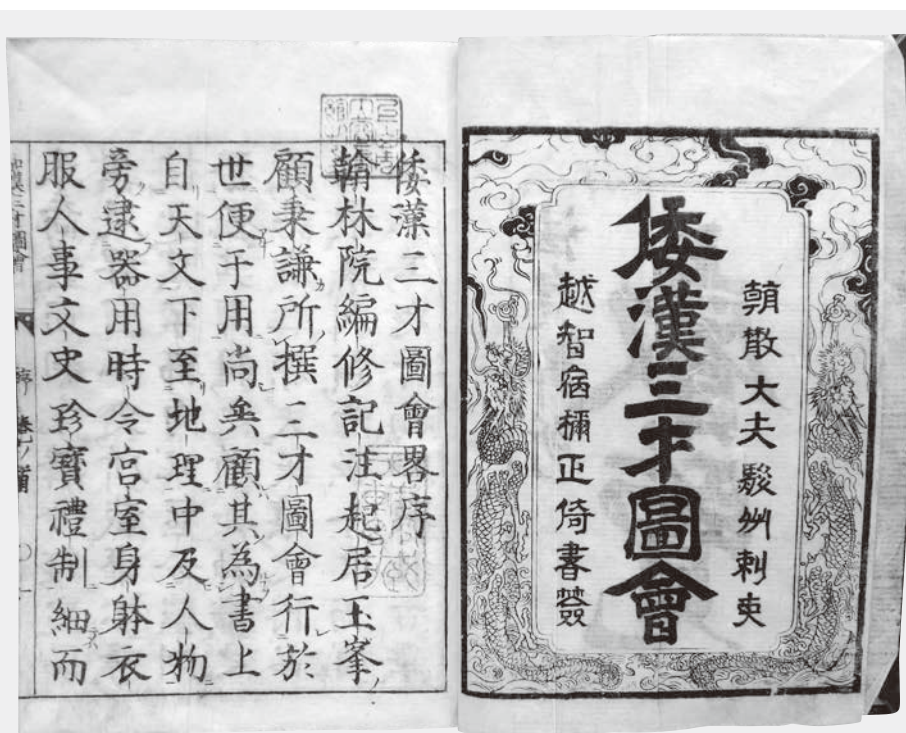 朝散大夫駿州刺史
倭漢三才圖會
越智宿禰正倚書簽
倭漢三才圖會畧序
翰林院編修記注起居玉峯
顧秉謙所撰三才圖會行於
世便于用尚矣顧其為書上
自天文下至地理中及人物
旁逮器用時令宮室身躰衣
服人事文史珍寶禮制細而
三才圖會 序